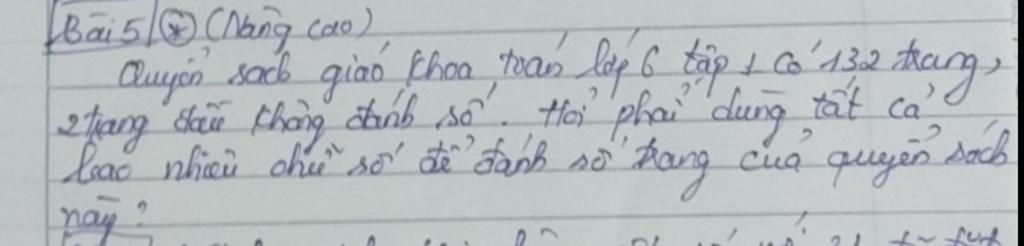 Bài 5 * (Nâng cao)
Quyển sách giáo khoa toán lớp 6 tập 1 có 132 trang,
2 trang đầu không đánh số. Hỏi phải dùng tất cả
bao nhiêu chữ số để đánh số trang của quyển sách
này?